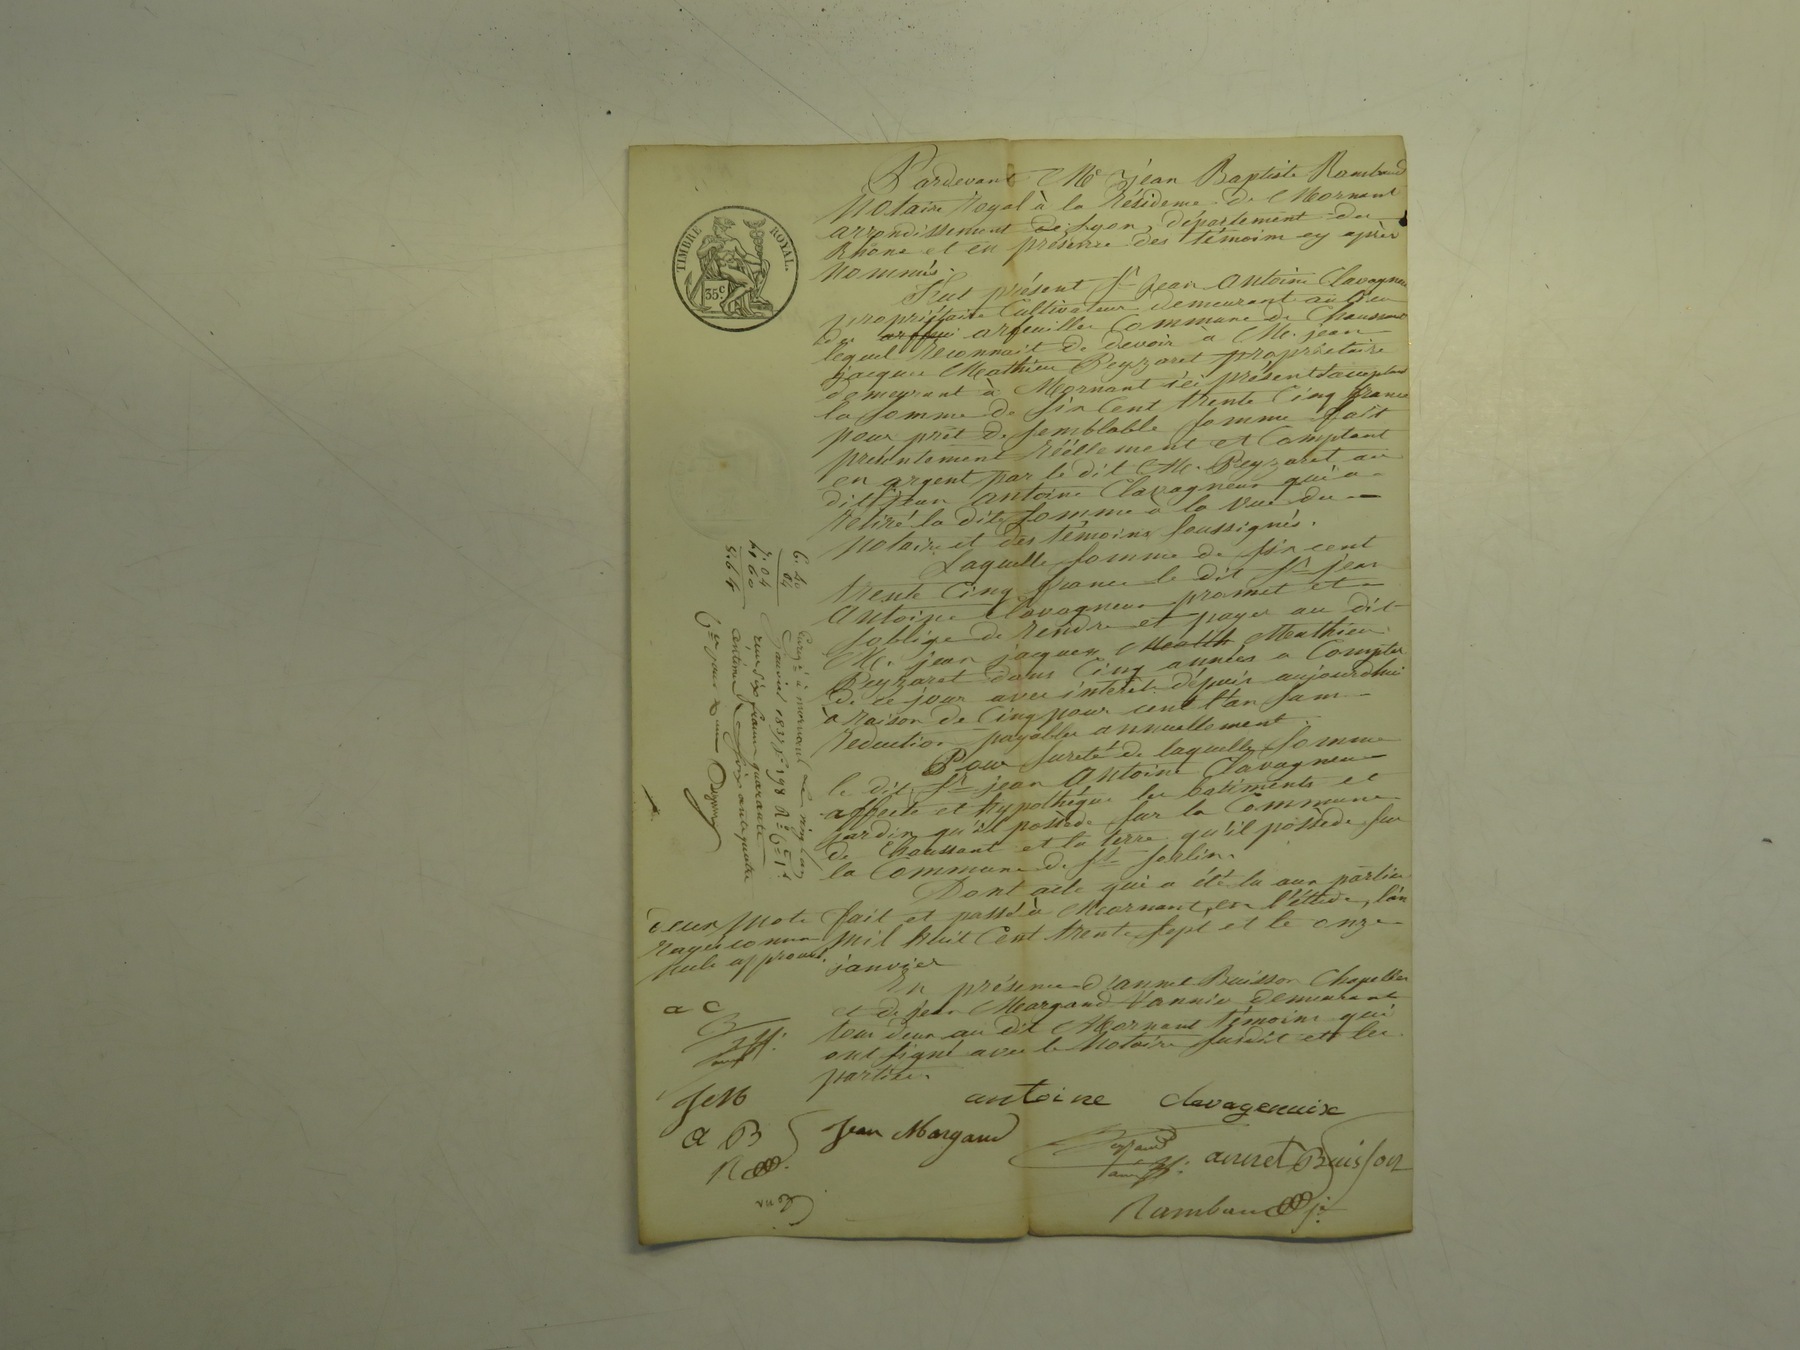 TIMBRE ROYAL.
35c.
Pardevant Me jean Baptiste Rambaud
Notaire Royal à la Résidence de Mornant
arrondissement de Lyon, département du
Rhône et en présence des témoins cy après
Nommés.
Fut présent Sr jean Antoine Clavagneux
propriétaire Cultivateur demeurant au lieu
de arfeuille Commune de Chaussant
lequel Reconnait de devoir à M. jean
jacques Mathieu Peyzaret propriétaire
demeurant à Mornant ici présent & acceptant
la somme de six Cent trente Cinq francs
pour prêt de semblable somme fait
présentement Réellement et Comptant
en argent par le dit M. Peyzaret au
dit Sr jean Antoine Clavagneux qui a
Retiré la dite somme à la vue du
Notaire et des témoins soussignés.
Laquelle somme de six cent
trente Cinq francs le dit Sr jean
Antoine Clavagneux promet et
s'oblige de Rendre et payer au dit
M. jean jacques Mathieu
Peyzaret dans Cinq années a Compter
de ce jour avec intérêt dépuis aujourdhui
à Raison de Cinq pour cent l'an sans
Reduction payables annuellement.
Pour sureté de laquelle somme
le dit Sr jean Antoine Clavagneux
affecte et hypothèque les batiments et
jardin qu'il possède sur la Commune
de Chaussant et la terre qu'il possède sur
la Commune de St Sorlin.
Dont acte qui a été lu aux parties
fait et passé à Mornant, en l'étude, l'an
Mil huit Cent trente sept et le onze
janvier
En présence d'annet Buisson Chapellier
et de jean Margaud Vannier demeurant
tous deux au dit Mornant témoins qui
ont signé avec le Notaire susdit et les
parties.
antoine clavagenuix
Jean Margaud
annet Buisson
Rambaud je
6. 40
64
7. 04
1. 60
5. 64
janvier 1837 f. 198 Ro Ce 1e
six francs quarante
centimes
deux mots
Rayés comme
nuls approuvés.
a C
JeM
a B
R